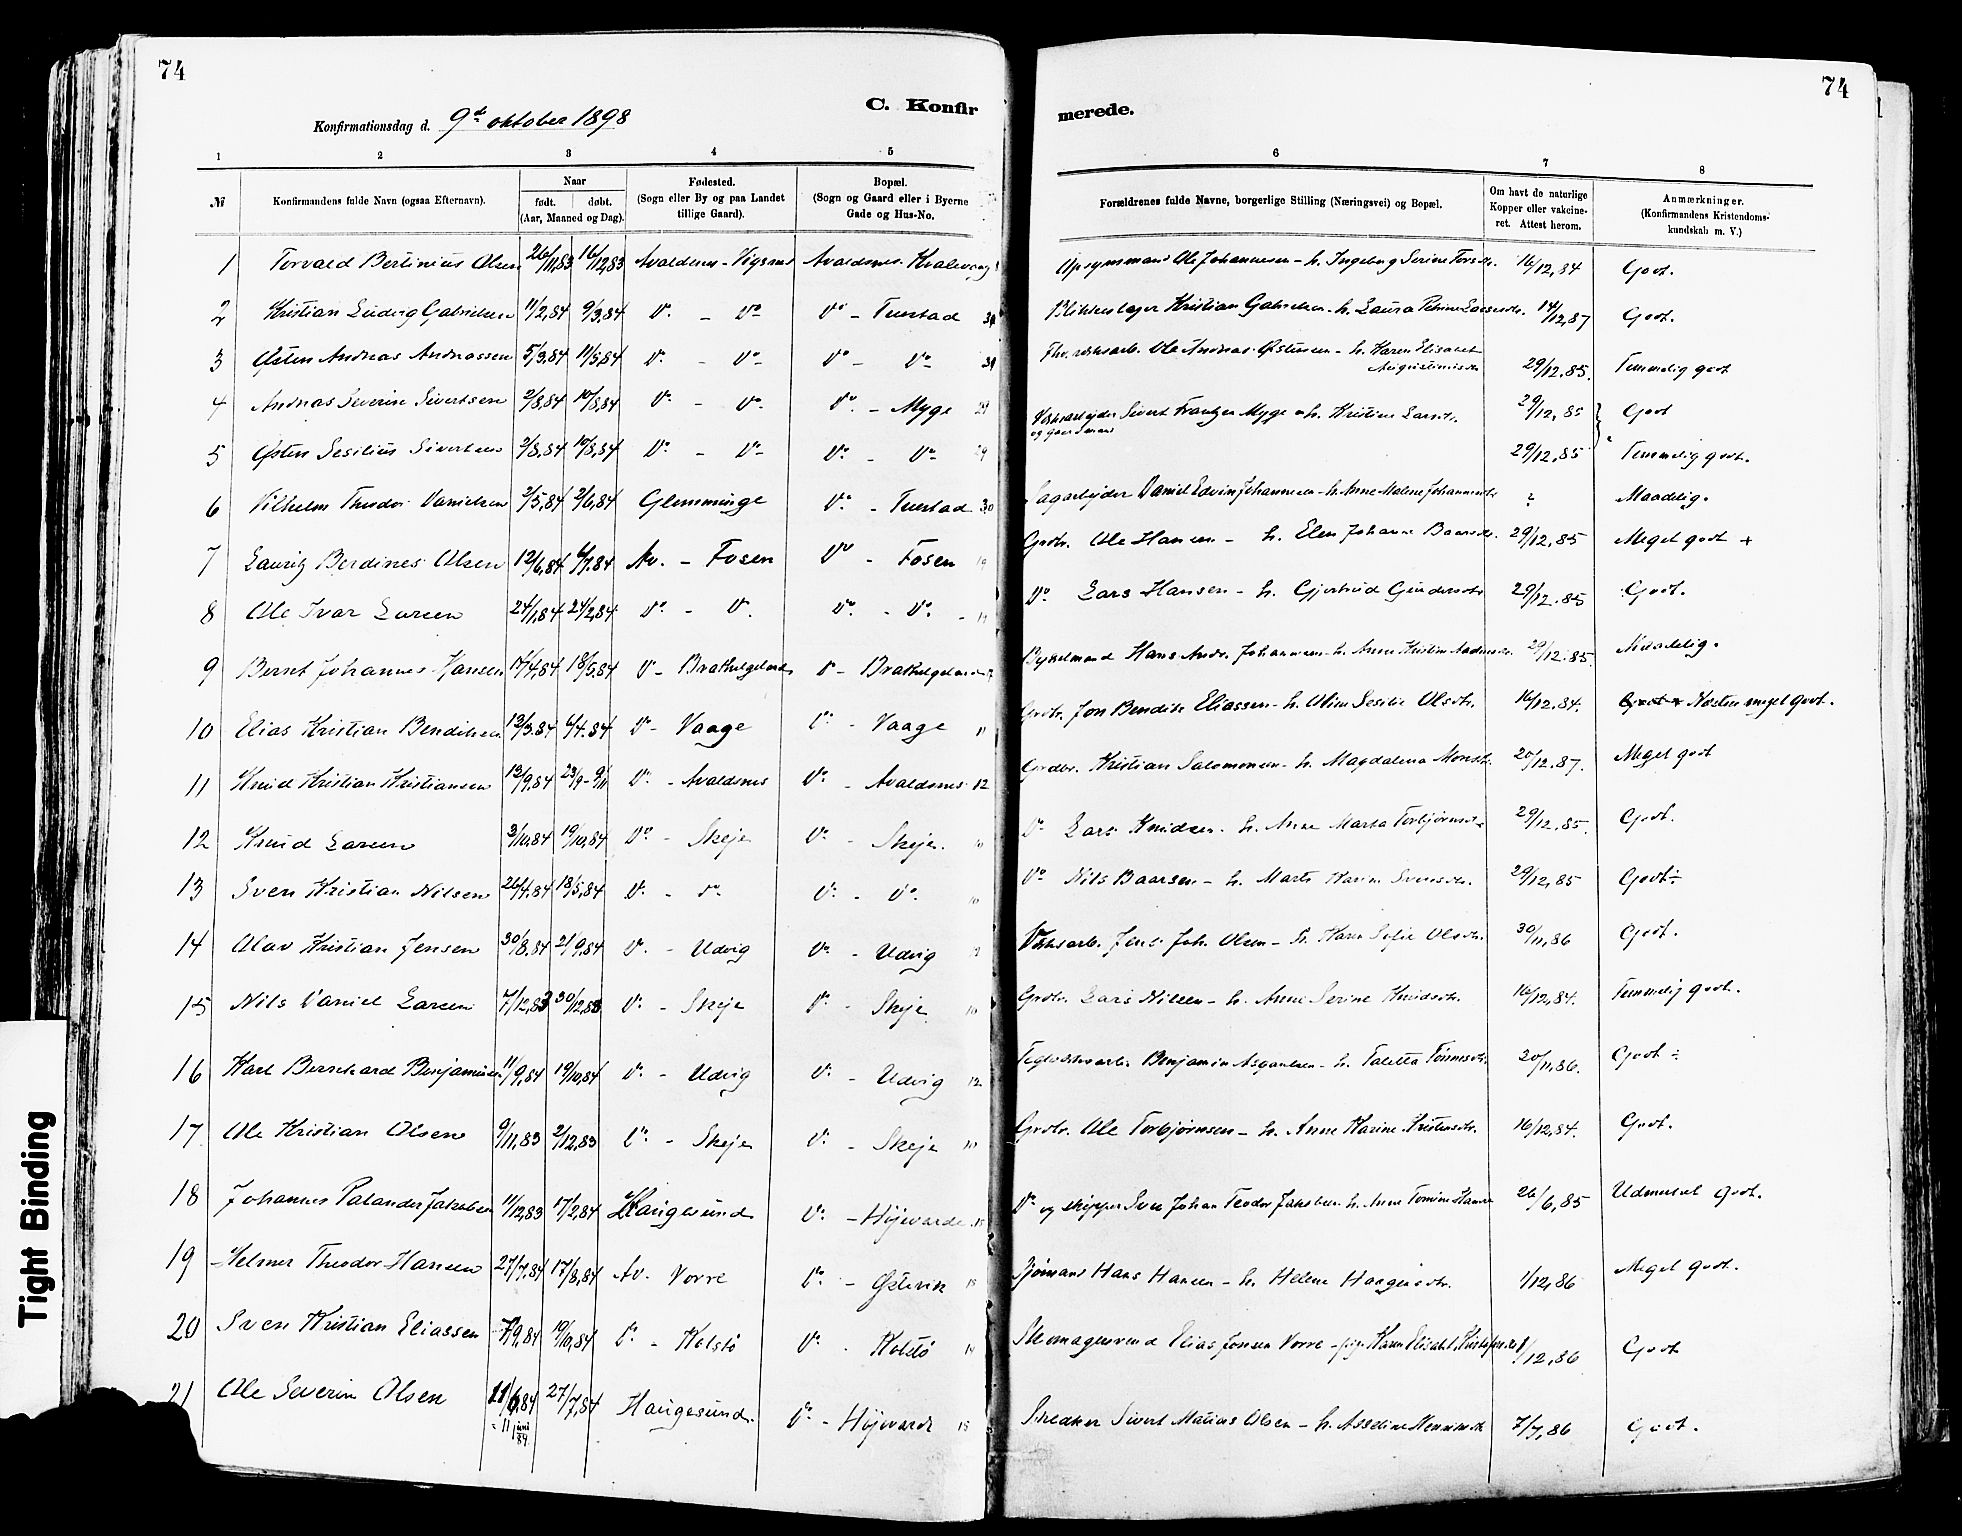 74
74
C. Konfirmerede.
Konfirmationsdag d. 9d. oktober 1898
1 2 3 4 5 6 7 8
№ Konfirmandens fulde Navn (ogsaa Efternavn). Naar født. døbt. (Aar, Maaned og Dag). Fødested. (Sogn eller By og paa Landet tillige Gaard). Bopæl. (Sogn og Gaard eller i Byerne Gade og Hus-No. Forældrenes fulde Navne, borgerlige Stilling (Næringsvei) og Bopæl. Om havt de naturlige Kopper eller vakcineret. Attest herom. Anmærkninger. (Konfirmandens Kristendomskundskab m. V.)
1 Torvald Bertinius Olsen 26/11,83 16/12,83 Avaldsnes Avaldsnes Opsynsmand Ole Johannesen - h. Ingeborg Serine 16/12,84 Godt.
2 Kristian Ludvig Gabrielsen 11/2,84 9/3,84 Do - Do Do - Tuestad Blikkenslager Kristian Gabrielsen - h. Laura Petrine Larsdtr. 14/12,87 Godt.
3 Østen Andreas Andreassen 5/3,84 11/5,84 Do - Do Do - Do Ole Andreas Østensen - h. Karen Elisabet Augustinusdtr 29/12.85. Temmelig godt
4 Andreas Severin Sivertsen 2/8,84 10/8,84 Do - Do Do - Myge 29 Sivert Frantzen Myge - h. Kristine Larsdtr. 29/12,85 Godt
og Gaardmand
5 Østen Sesilius Sivertsen 2/8,84 10/8,84 Do - Do Do - Do 29 29/12,85 Temmelig godt.
6 Vilhelm Theodor Danielsen 2/5,84 2/6,84 Glemminge Do - Tuestad 30 Sagarbejder Daniel Edvin Johannesen - h. Anne Malene Johannesdtr ? Maadelig.
7 Lauritz Berdines Olsen 12/6,84 6/7.84 Av. - Fosen Do - Fosen 19 Grdbr. Ole Hansen - h. Elen Johanne Baarsdtr. 29/12,85 Meget godt +
8 Ole Ivar Larsen 24/1,84 24/2,84 Do - Do Do - Do Do Lars Hansen - h. Gjertrud Gundersdtr 29/12.85 Godt.
9 Bernt Johannes Hansen 17/4,84 18/5.84 Do - Bratthelgeland Do - Bratthelgeland Hans Andr. Johannesen - h. Anne Kristine 29/12.85. Maadelig.
10 Elias Kristian Bendiksen 12/3.84 6/4.84 Do - Vaage Do - Vaage 11 Grdbr. Jon Bendik Eliassen - h. Oline Sesilie Olsdtr. 16/12,84. Næsten meget godt.
11 Knud Kristian Kristiansen 12/9,84 23/9 - 9/11 Do - Avaldsnes Do - Avaldsnes 12 Grdbr. Kristian Salomonsen - h. Magdalena Monsdtr. 20/12.87. Meget godt
12 Knud Larsen 3/10,84 19/10,84 Do - Skeje Do - Skeje. 10 Do Lars Knudsen - h. Anne Marta Torbjørnsdtr 29/12.85. Godt.
13 Sven Kristian Nilsen 26/4.84 18/5,84 Do - Do Do - Do 10 Do Nils Baarsen - h. Marta Karine Svensdtr. 29/12,85 Godt ÷
14 Olav Kristian Jensen 30/8.84 21/9.84 Do - Udvig Do - Udvig Jens Joh. Olsen - h. Karen Sofie Olsdtr. 30/11,86 Godt.
15 Nils Daniel Larsen 7/12,83 30/12,83 Do - Skeje Do - Skeje 10 Grdbr. Lars Nilsen - h. Anne Serine Knudsdtr. 16/12,84. Temmelig godt.
16 Karl Bernhard Benjaminsen 11/9,84 19/10,84 Do - Udvig Do - Udvig 12 Benjamin Asgautsen - h. Taletta Tønnesdtr. 20/11,86. Godt ÷
17 Ole Kristian Olsen 9/11,83 2/12,83 Do - Skeje Do - Skeje 10 Grdbr. Ole Torbjørnsen - h. Anne Karine Kristensdtr. 16/12,84. Godt.
18 Johannes Palander Jakobsen 11/12,83 17/2,84 Haugesund Do - Højevarde 15 Do og skipper Sven Johan Teodor Jakobsen h. Anne Tomine Hansdtr 26/6,85 Udmerket godt.
19 Helmer Theodor Hansen 27/7,84 17/8,84 Av. Vorre Do - Østevik 15 Sjømand Hans Hansen - h. Helene Haagensdtr. 1/12,86 Meget godt.
20 Sven Kristian Eliassen 7/9,84 19/10,84 Do - Kolstø Do - Kolstø 14 Skomagersvend Elias Jonsen Vorre - pige Karen Elisabet Kristofersdtr 1/12,86 Godt
21 Ole Severin Olsen 11/6,84 27/7,84 Haugesund. Do - Højevarde 15 Skrædder Sivert Matias Olsen - h. Asseline 7/7,86 Godt.
= 11 juni 84
Tight Binding